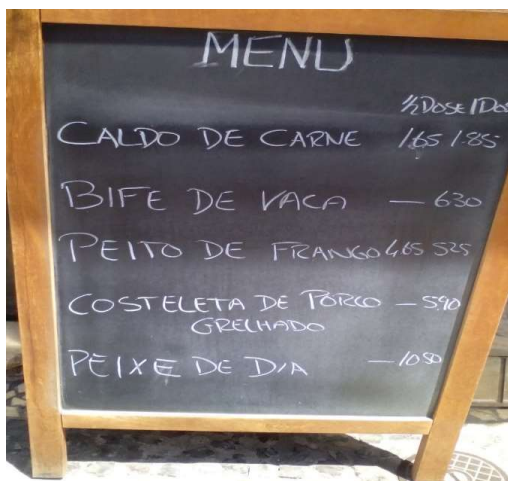 MENU
½ DOSE 1 DOS
CALDO DE CARNE 1.65 1.85
BIFE DE VACA — 630
PEITO DE FRANGO 4.65 525
COSTELETA DE PORCO — 590
GRELHADO
PEIXE DE DIA — 1050